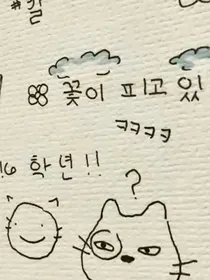 #킬
꽃이 피고 있
ㅋㅋㅋㅋ
16 학년!!
?